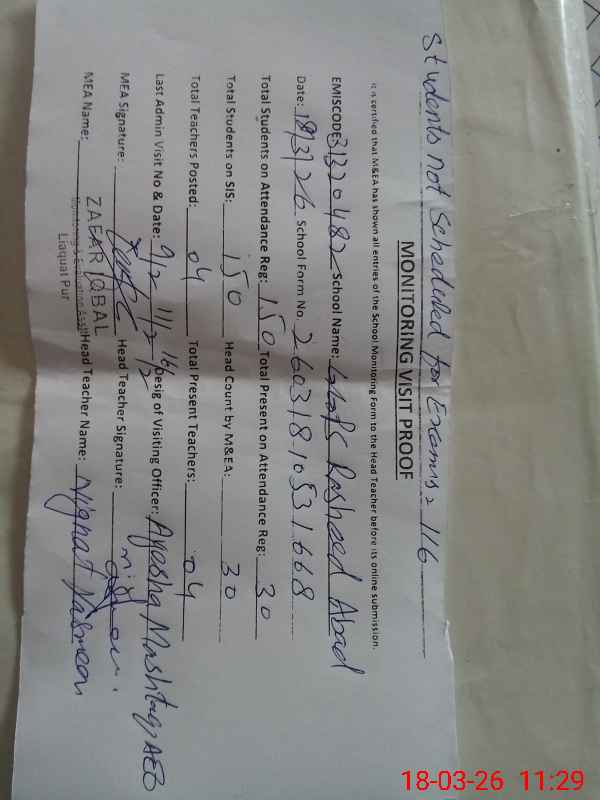 Students not Scheduled for Exams = 116
MONITORING VISIT PROOF
It is certified that M&EA has shown all entries of the School Monitoring Form to the Head Teacher before its online submission.
EMISCODE: 31320482 School Name: GGPS Rasheed Abad
Date: 18/3/26 School Form No. 260318-10531668
Total Students on Attendance Reg: 150 Total Present on Attendance Reg: 30
Total Students on SIS: 150 Head Count by M&EA: 30
Total Teachers Posted: 04 Total Present Teachers: 04
Last Admin Visit No & Date: 9/2, 11/2, 16/2 Desig of Visiting Officer: Ayesha Mashtaq AEO
MEA Signature: Head Teacher Signature:
MEA Name: ZAFAR IQBAL Head Teacher Name: Nighat Yasmeen
Monitoring & Evaluation Asstt
Liaquat Pur
18-03-26 11:29